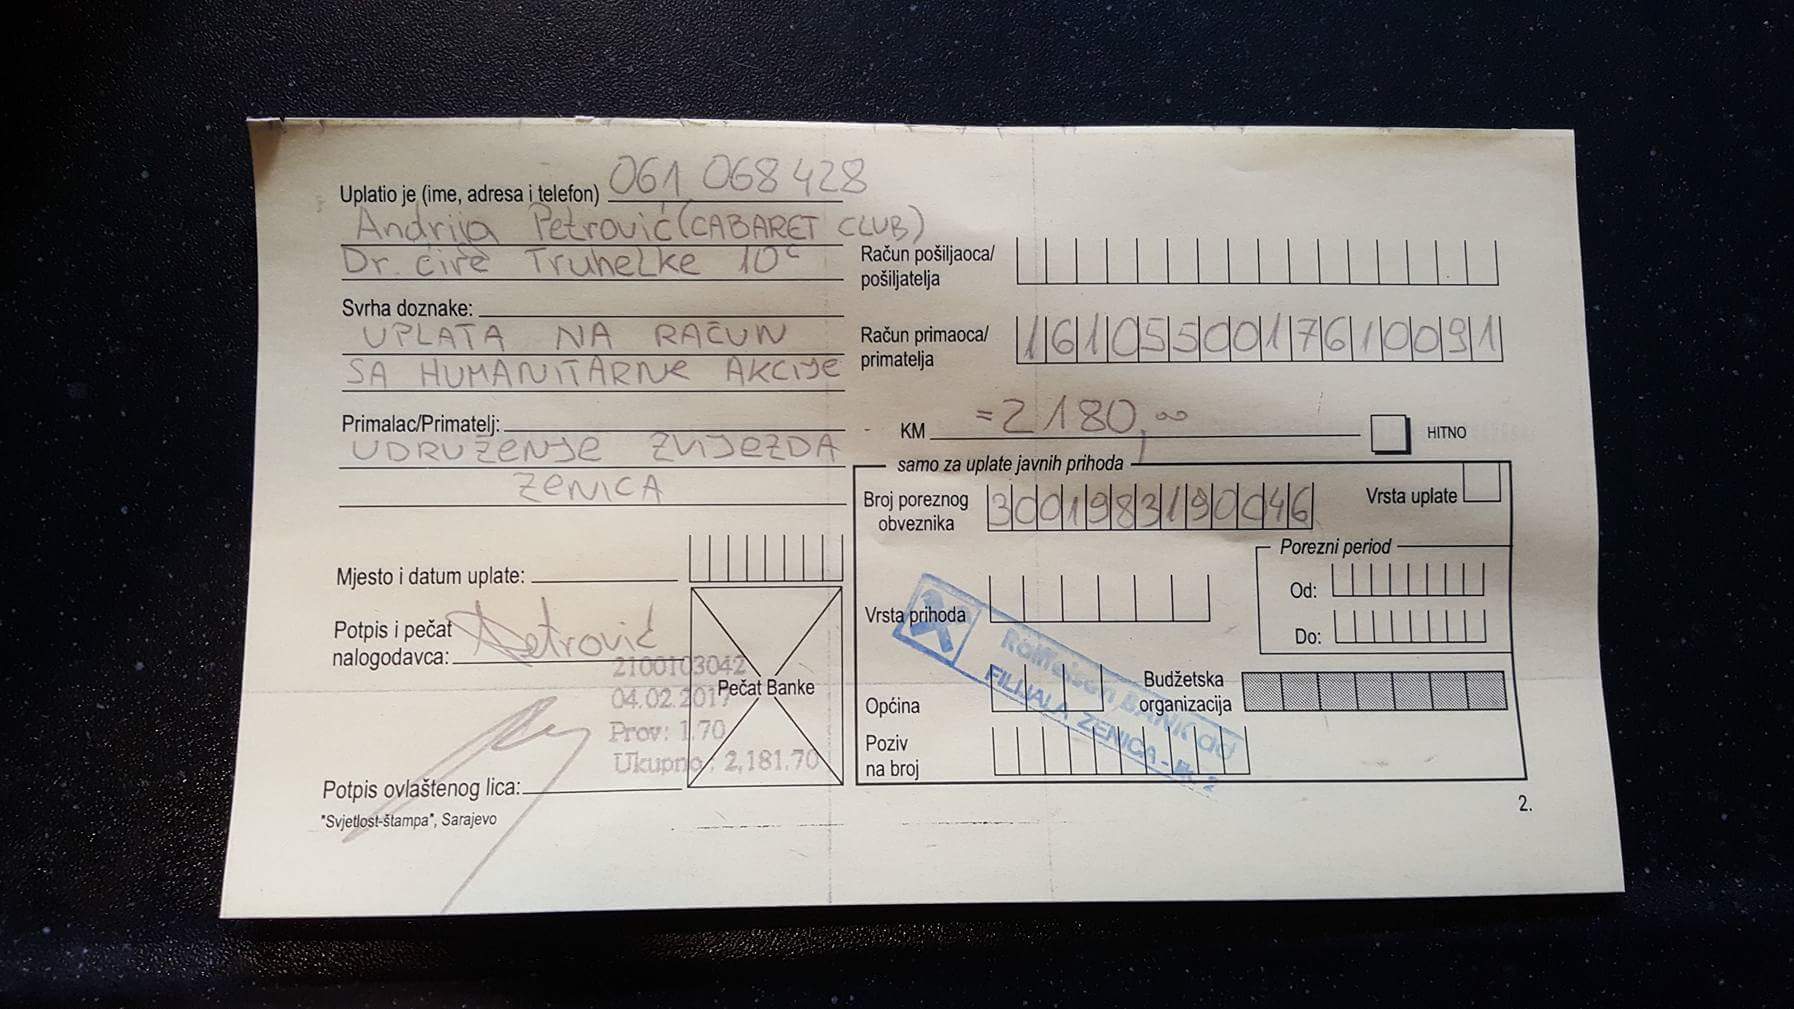 Uplatio je (ime, adresa i telefon) 061 068 428
Andrija Petrović (CABARET CLUB)
Dr. Ćire Truhelke 10c
Račun pošiljaoca/
pošiljatelja
Svrha doznake:
UPLATA NA RAČUN
SA HUMANITARNE AKCIJE
Račun primaoca/
primatelja
1610550017610091
Primalac/Primatelj:
UDRUŽENJE ZVIJEZDA
ZENICA
KM =2180,00
HITNO
samo za uplate javnih prihoda
Broj poreznog
obveznika
3001983190046
Vrsta uplate
Porezni period
Od:
Do:
Mjesto i datum uplate:
Vrsta prihoda
Potpis i pečat
nalogodavca:
Petrović
2100103042
04.02.2017
Prov: 1.70
Ukupno: 2,181.70
Pečat Banke
Raiffeisen BANK dd
FILIJALA ZENICA
Općina
Budžetska
organizacija
Poziv
na broj
Potpis ovlaštenog lica:
"Svjetlost-štampa", Sarajevo
2.